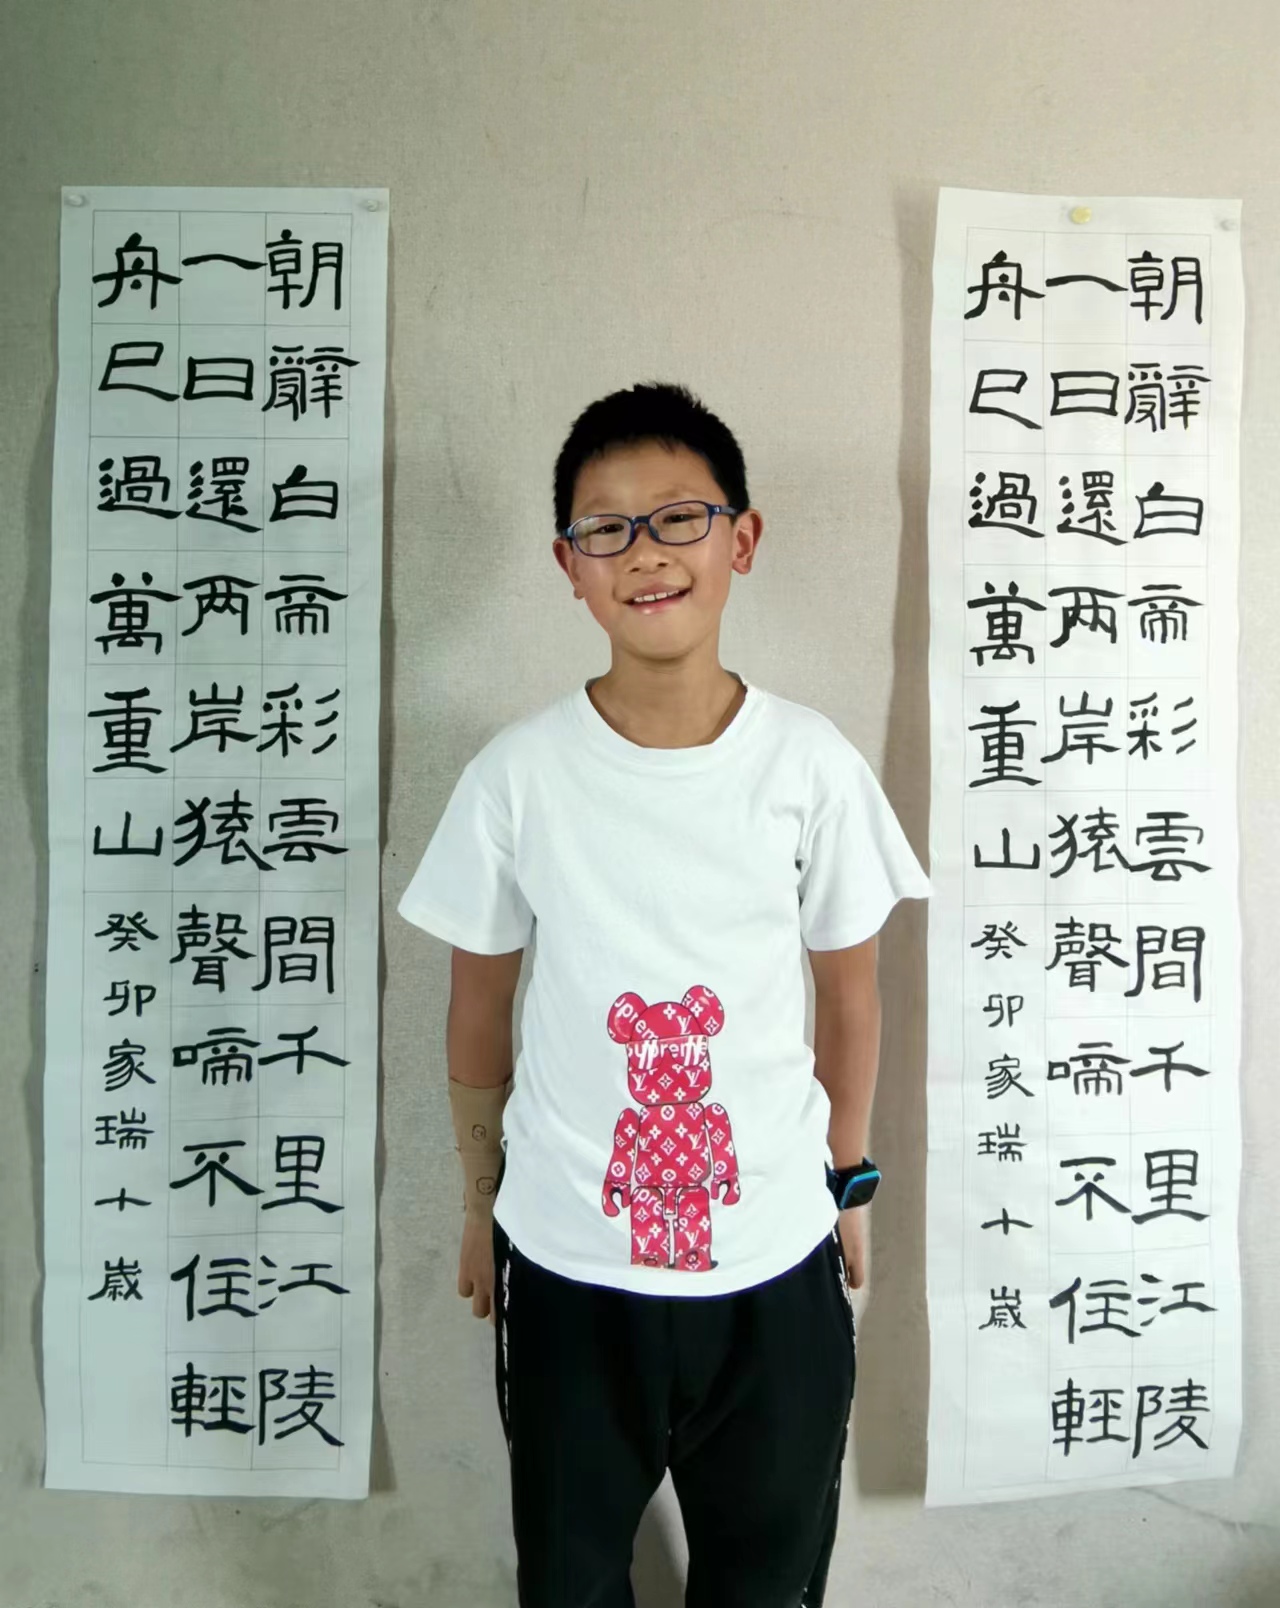 朝辭白帝彩雲間千里江陵
一日還两岸猿聲啼不住輕
舟已過萬重山
癸卯家瑞十歲
朝辭白帝彩雲間千里江陵
一日還两岸猿聲啼不住輕
舟已過萬重山
癸卯家瑞十歲
Supreme